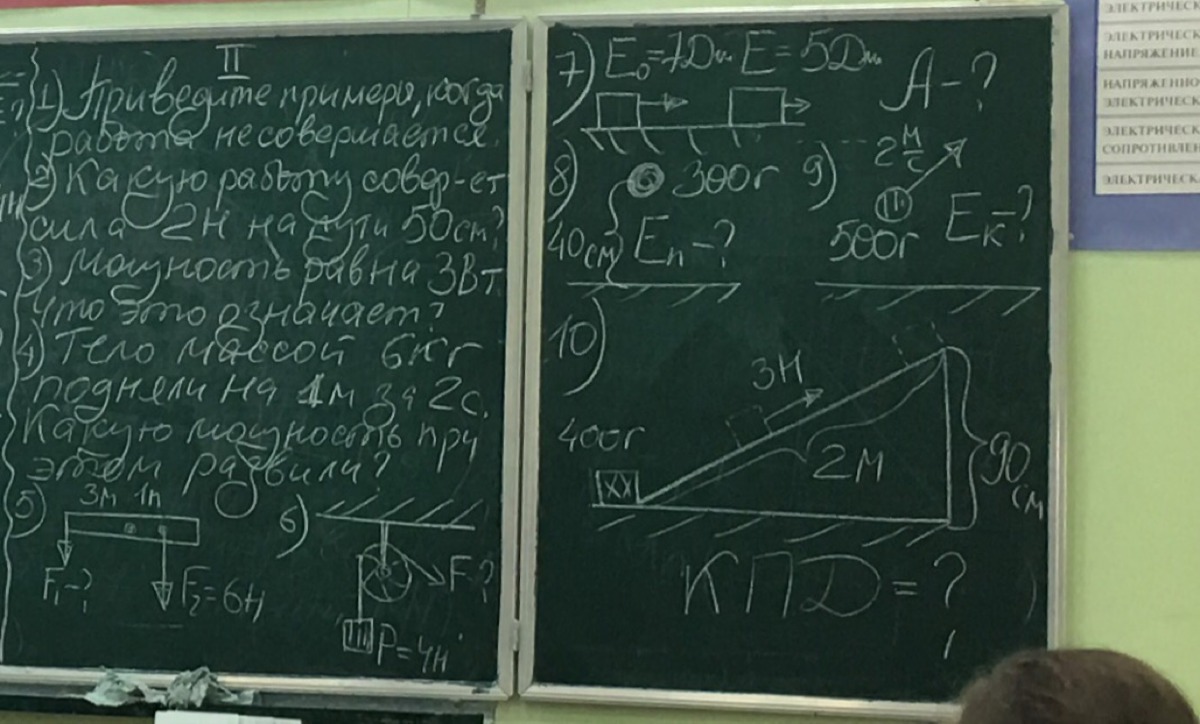 II
1) Приведите примеры, когда
работа не совершается.
2) Какую работу совер-ет
сила 2Н на пути 50см?
3) Мощность равна 3Вт
что это означает?
4) Тело массой 6кг
подняли на 1м за 2с.
Какую мощность при
этом развили?
5) 3м 1м
F₁-?
F₂=6Н
6)
F-?
P=4Н
7) E₀=7Дж E=5Дж
A-?
8) 300г
40см Eп-?
9) 2 м/с
500г Eк-?
10)
3Н
400г
2м
90 см
КПД=?
ЭЛЕКТРИЧЕСК
ЭЛЕКТРИЧЕСК
НАПРЯЖЕНИЕ
НАПРЯЖЕННО
ЭЛЕКТРИЧЕСК
ЭЛЕКТРИЧЕСК
СОПРОТИВЛЕН
ЭЛЕКТРИЧЕСКА